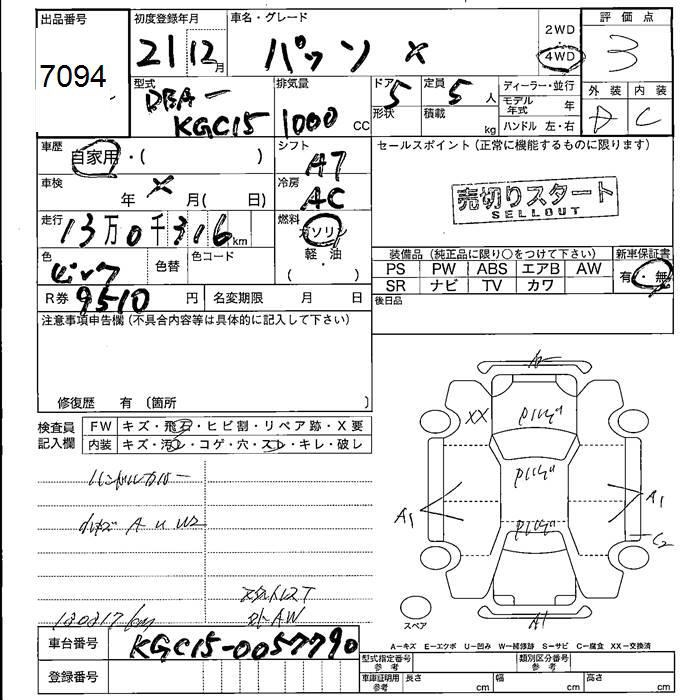 出品番号
7094
初度登録年月
21 12 月
車名・グレード
パッソ X
2WD
4WD
評価点
3
外装 内装
D C
型式
DBA-
KGC15
排気量
1000 cc
ドア 5
形状
定員 5 人
積載 kg
ディーラー・並行
モデル年式 年
ハンドル 左・右
車歴
自家用・( )
車検
年 X 月( 日)
走行
13万0千316km
色
色替
色コード
R券 9510 円
名変期限 月 日
シフト
AT
冷房
AC
燃料
ガソリン
軽・油
( )
セールスポイント(正常に機能するものに限ります)
売切りスタート
SELLOUT
装備品(純正品に限り○をつけて下さい)
PS PW ABS エアB AW
SR ナビ TV カワ
新車保証書
有・無
後日品
注意事項申告欄(不具合内容等は具体的に記入して下さい)
修復歴 有 〔箇所 〕
検査員
記入欄
FW キズ・飛石・ヒビ割・リペア跡・X要
内装 キズ・汚レ・コゲ・穴・スレ・キレ・破し
A U W2
外AW
130317km
XX
A1
A1
C2
A1
スペア
A−キズ E−エクボ U−凹み W−補修跡 S−サビ C−腐食 XX−交換済
車台番号
KGC15-0057790
登録番号
型式指定番号
参考
類別区分番号
参考
車庫証明用
参考
長さ cm
幅 cm
高さ cm